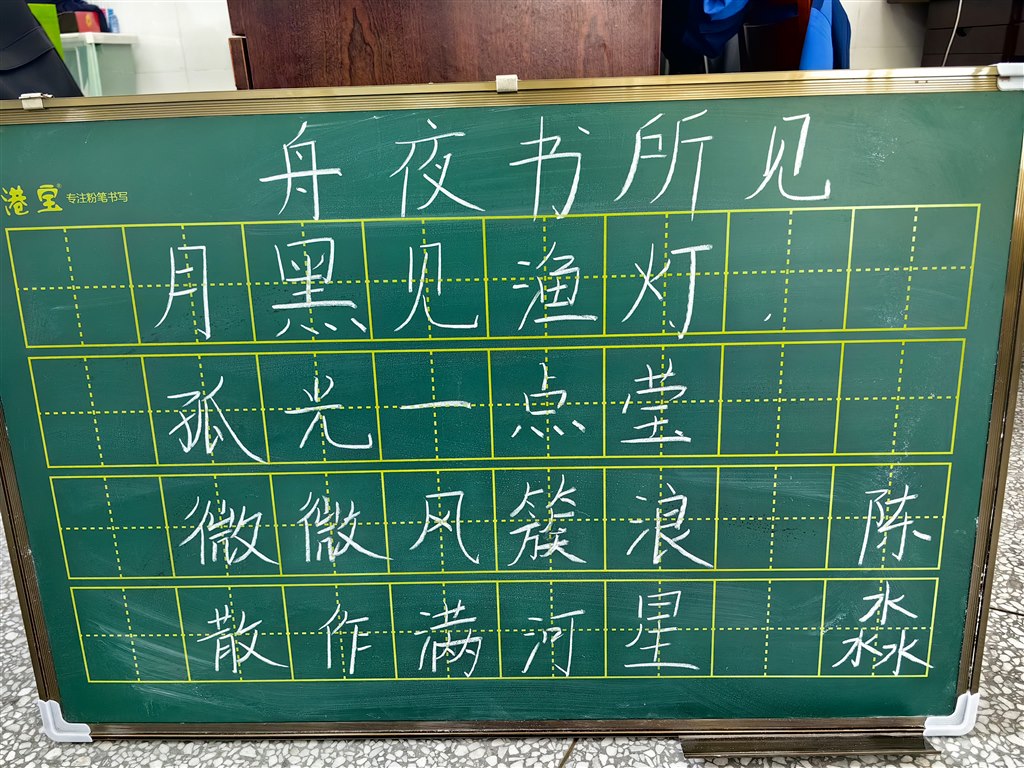 舟夜书所见
港宝® 专注粉笔书写
月黑见渔灯
孤光一点莹
微微风簇浪 陈
散作满河星 淼